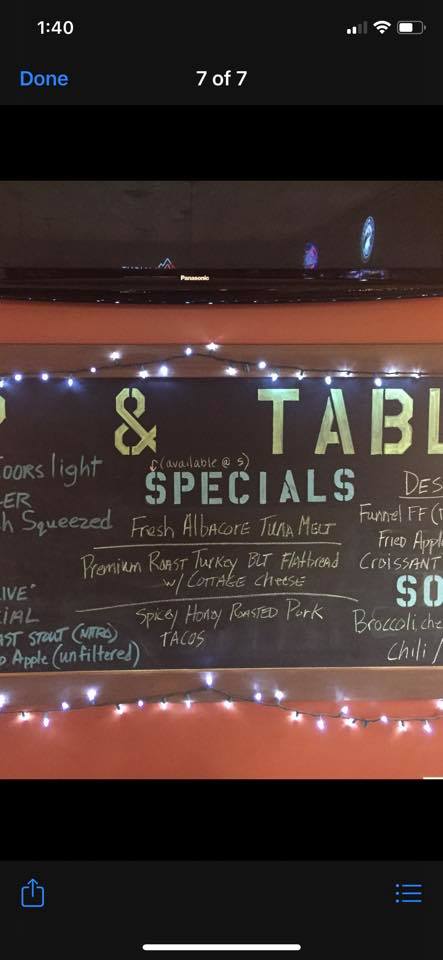 1:40
Done
7 of 7
Panasonic
& TABL
OORS light
ER
h Squeezed
(available @ 5)
SPECIALS
Fresh Albacore Tuna Melt
Premium Roast Turkey BLT Flatbread
w/ Cottage Cheese
Spicy Honey Roasted Pork
TACOS
LIVE"
IAL
AST STOUT (NITRO)
Apple (unfiltered)
DES
Funnel FF (
Fried Appl
CROISSANT
SO
Broccoli, che
Chili /